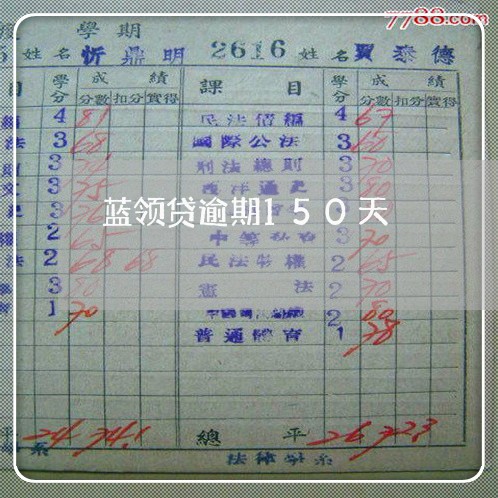 7788.com
學期
姓名 忻鼎明 2616 姓名 賈泰德
目 學分 成績 課目 學分 成績
分數 扣分 實得 分數 扣分 實得
4 81 民法債編 4 67
法 3 68 國際公法 3 60
3 刑法總則 3 70
3 75 西洋通史 3 80
3
蓝领贷逾期150天
2 65 3 70
法 2 68 68 民法物權 2 65
3 80 憲法 2 70
1 70 2 80
普通體育 1 78
平 24 74.1 總平 26 72.3
系 法律學系